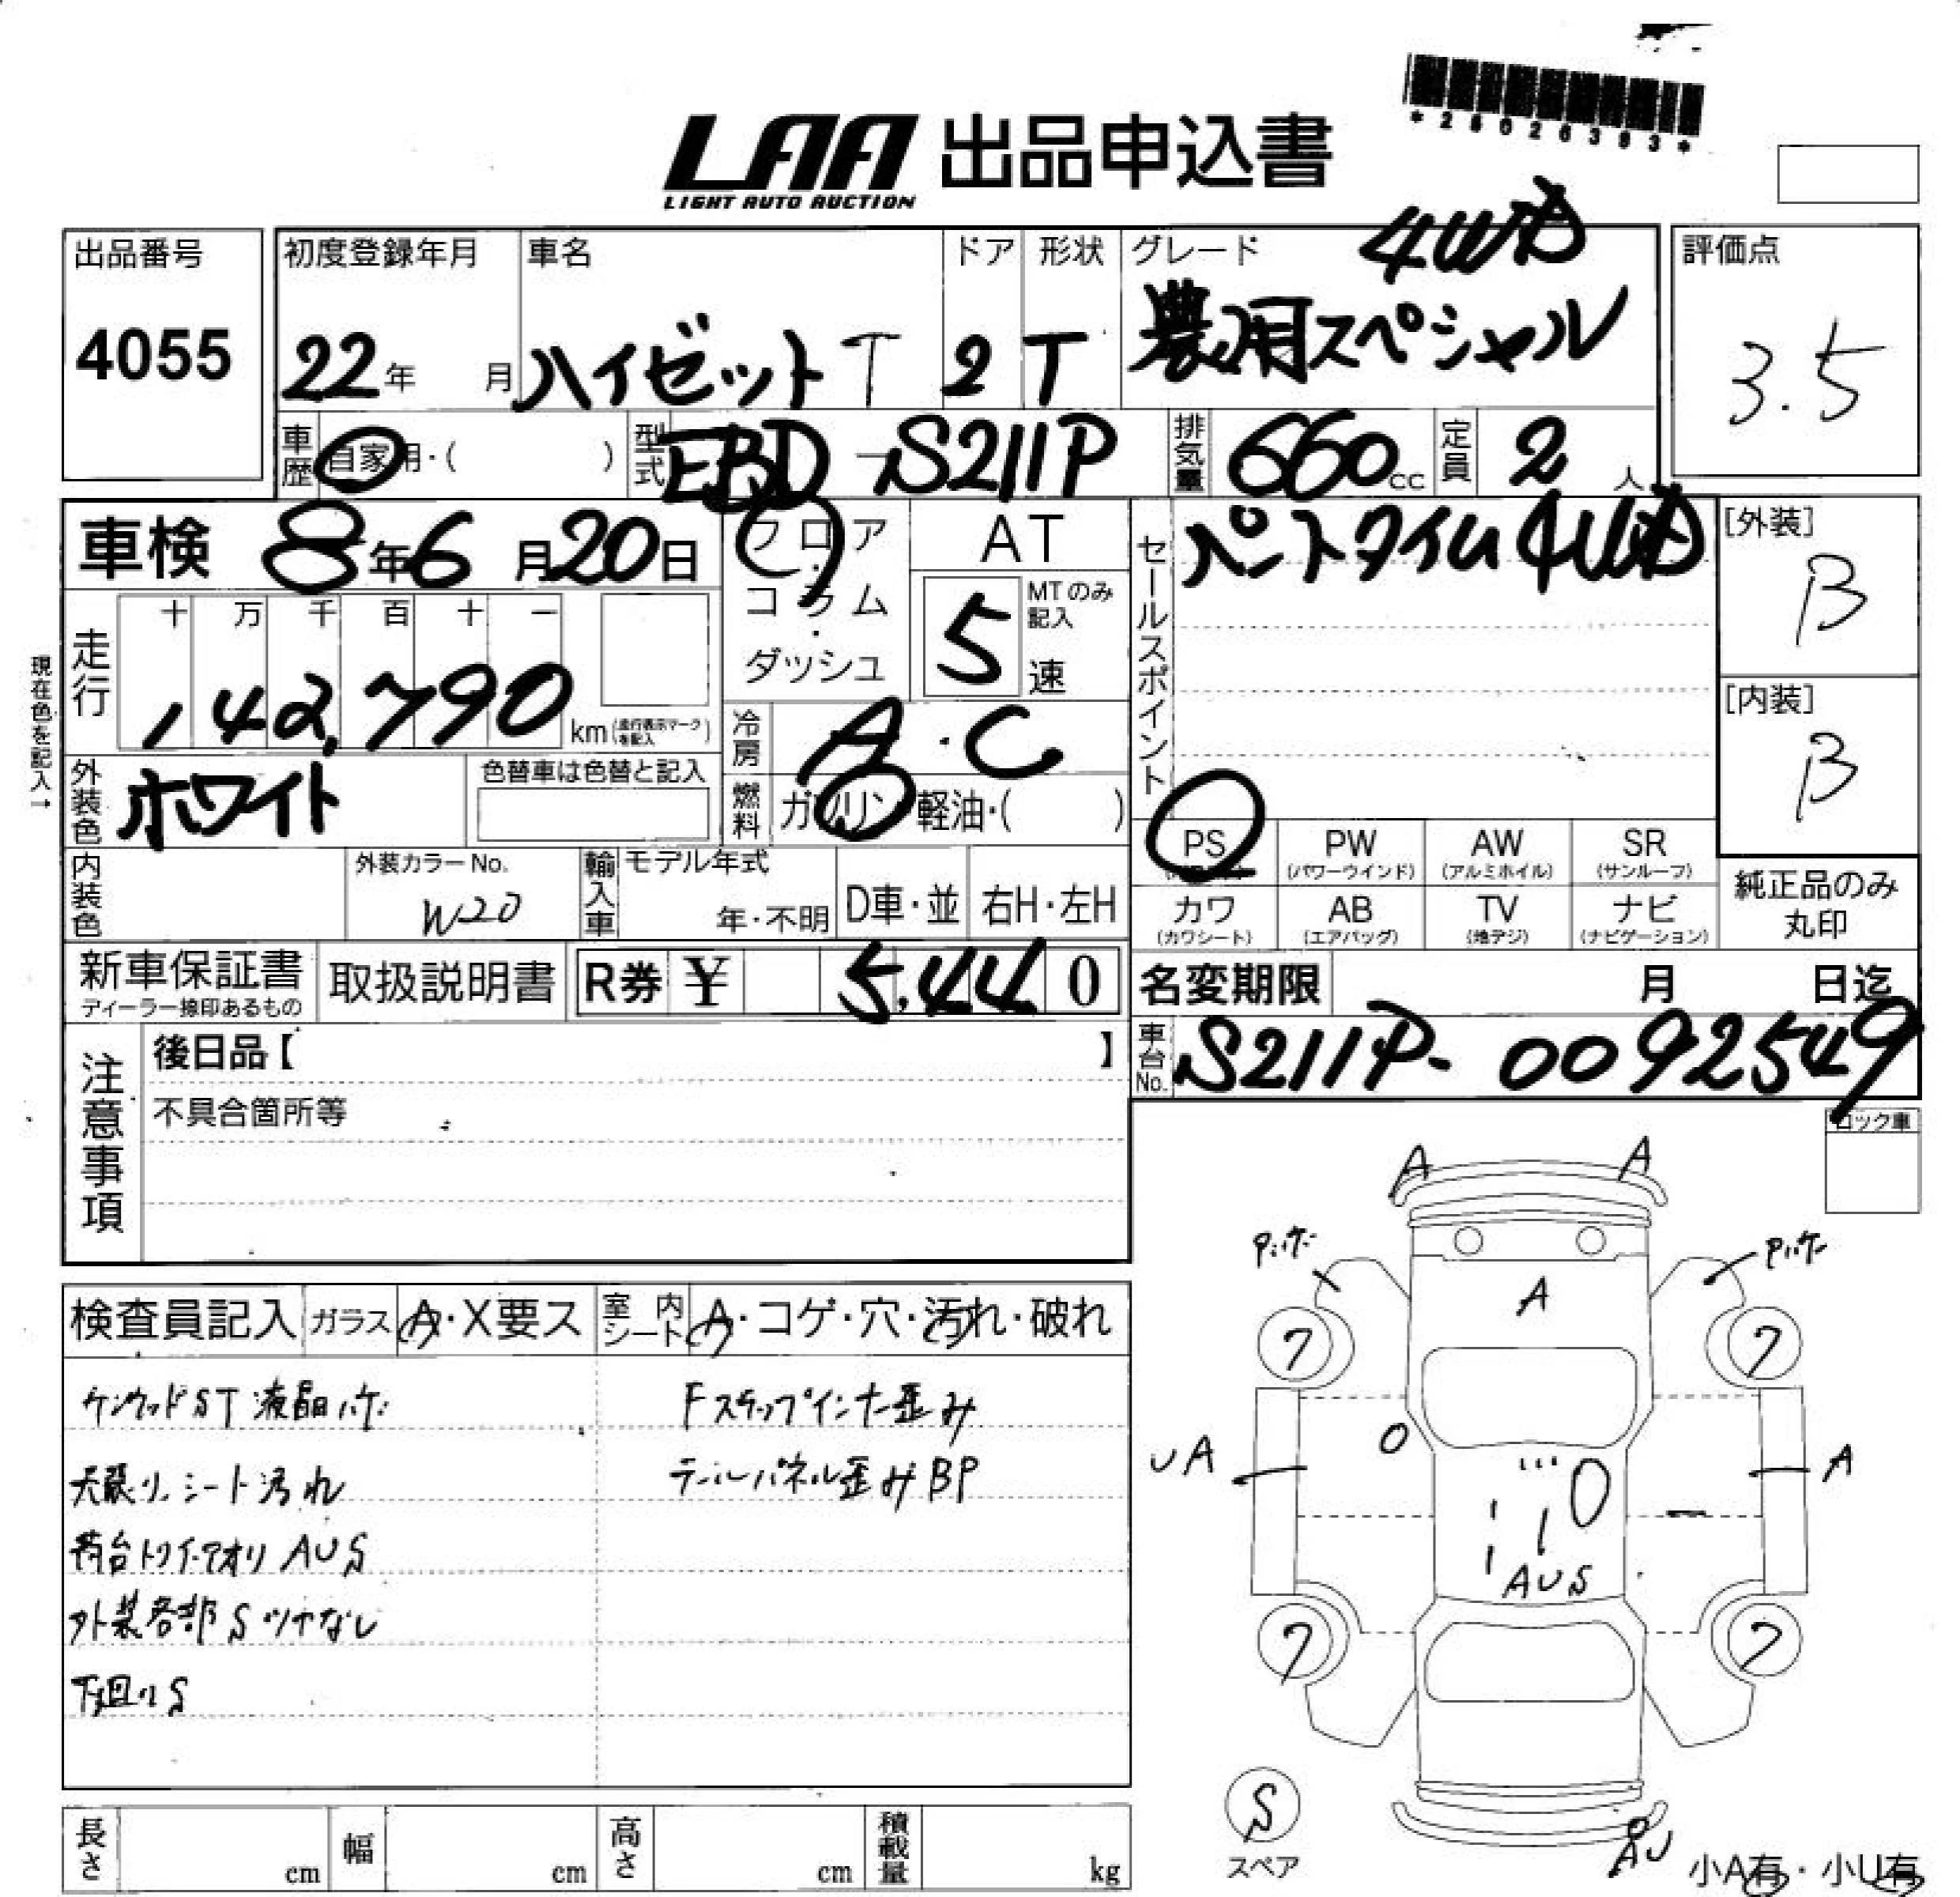 *25020393*
LAA 出品申込書
LIGHT AUTO AUCTION
出品番号
4055
初度登録年月
22年 月
車名
ハイゼット T
ドア
2
形状
T
グレード
4WD
農用スペシャル
評価点
3.5
車歴
自家用・( )
型式
EBD-S211P
排気量
660cc
定員
2人
車検 8年6月20日
フロア・コラム・ダッシュ
AT
5
MTのみ記入
速
セールスポイント
パートタイム4WD
[外装]
B
[内装]
B
現在色を記入→
走行
十 万 千 百 十 一
142,790 km(走行表示マークを記入)
冷房
A・C
外装色
ホワイト
色替車は色替と記入
燃料
ガソリン・軽油・( )
PS
PW
(パワーウインド)
AW
(アルミホイル)
SR
(サンルーフ)
内装色
外装カラーNo.
W20
輸入車
モデル年式
年・不明
D車・並
右H・左H
カワ
(カワシート)
AB
(エアバッグ)
TV
(地デジ)
ナビ
(ナビゲーション)
純正品のみ
丸印
新車保証書
ディーラー捺印あるもの
取扱説明書
R券 ¥ 5,440
名変期限 月 日迄
車台No.
S211P-0092549
注意事項
後日品【 】
不具合箇所等
ロック車
検査員記入
ガラス
A・X要ス
室内シート
A・コゲ・穴・汚れ・破れ
ケンウッドST 液晶ハゲ
Fステップインナー歪み
天張り、シート汚れ
テールパネル歪みBP
荷台トリイ・アオリ AUS
外装各部Sツヤなし
下廻りS
A A
A
フ フ
UA
A
AUS
フ フ
S
スペア
AU
小A有・小U有
長さ
cm
幅
cm
高さ
cm
積載量
kg